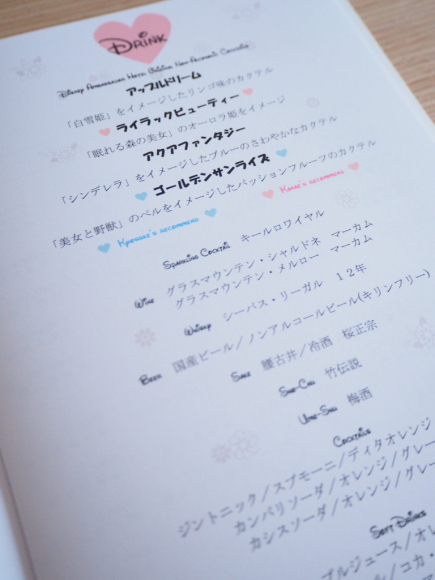 DRINK
Disney Ambassador Hotel Original Non-Alcoholic Cocktail
アップルドリーム
「白雪姫」をイメージしたリンゴ味のカクテル
ライラックビューティー
「眠れる森の美女」のオーロラ姫をイメージ
アクアファンタジー
「シンデレラ」をイメージしたブルーのさわやかなカクテル
ゴールデンサンライズ
「美女と野獣」のベルをイメージしたパッションフルーツのカクテル
recommend recommend
Sparkling Cocktail キールロワイヤル
Wine グラスマウンテン・シャルドネ マーカム
グラスマウンテン・メルロー マーカム
Whisky シーバス・リーガル 12年
Beer 国産ビール/ノンアルコールビール(キリンフリー)
Sake 腰古井/冷酒 桜正宗
Sho-Chu 竹伝説
Ume-Shu 梅酒
Cocktails
ジントニック/スプモーニ/ディタオレンジ
カンパリソーダ/オレンジ/グレー
カシスソーダ/オレンジ/グレー
Soft Drinks
プルジュース/オレ
/コカ・